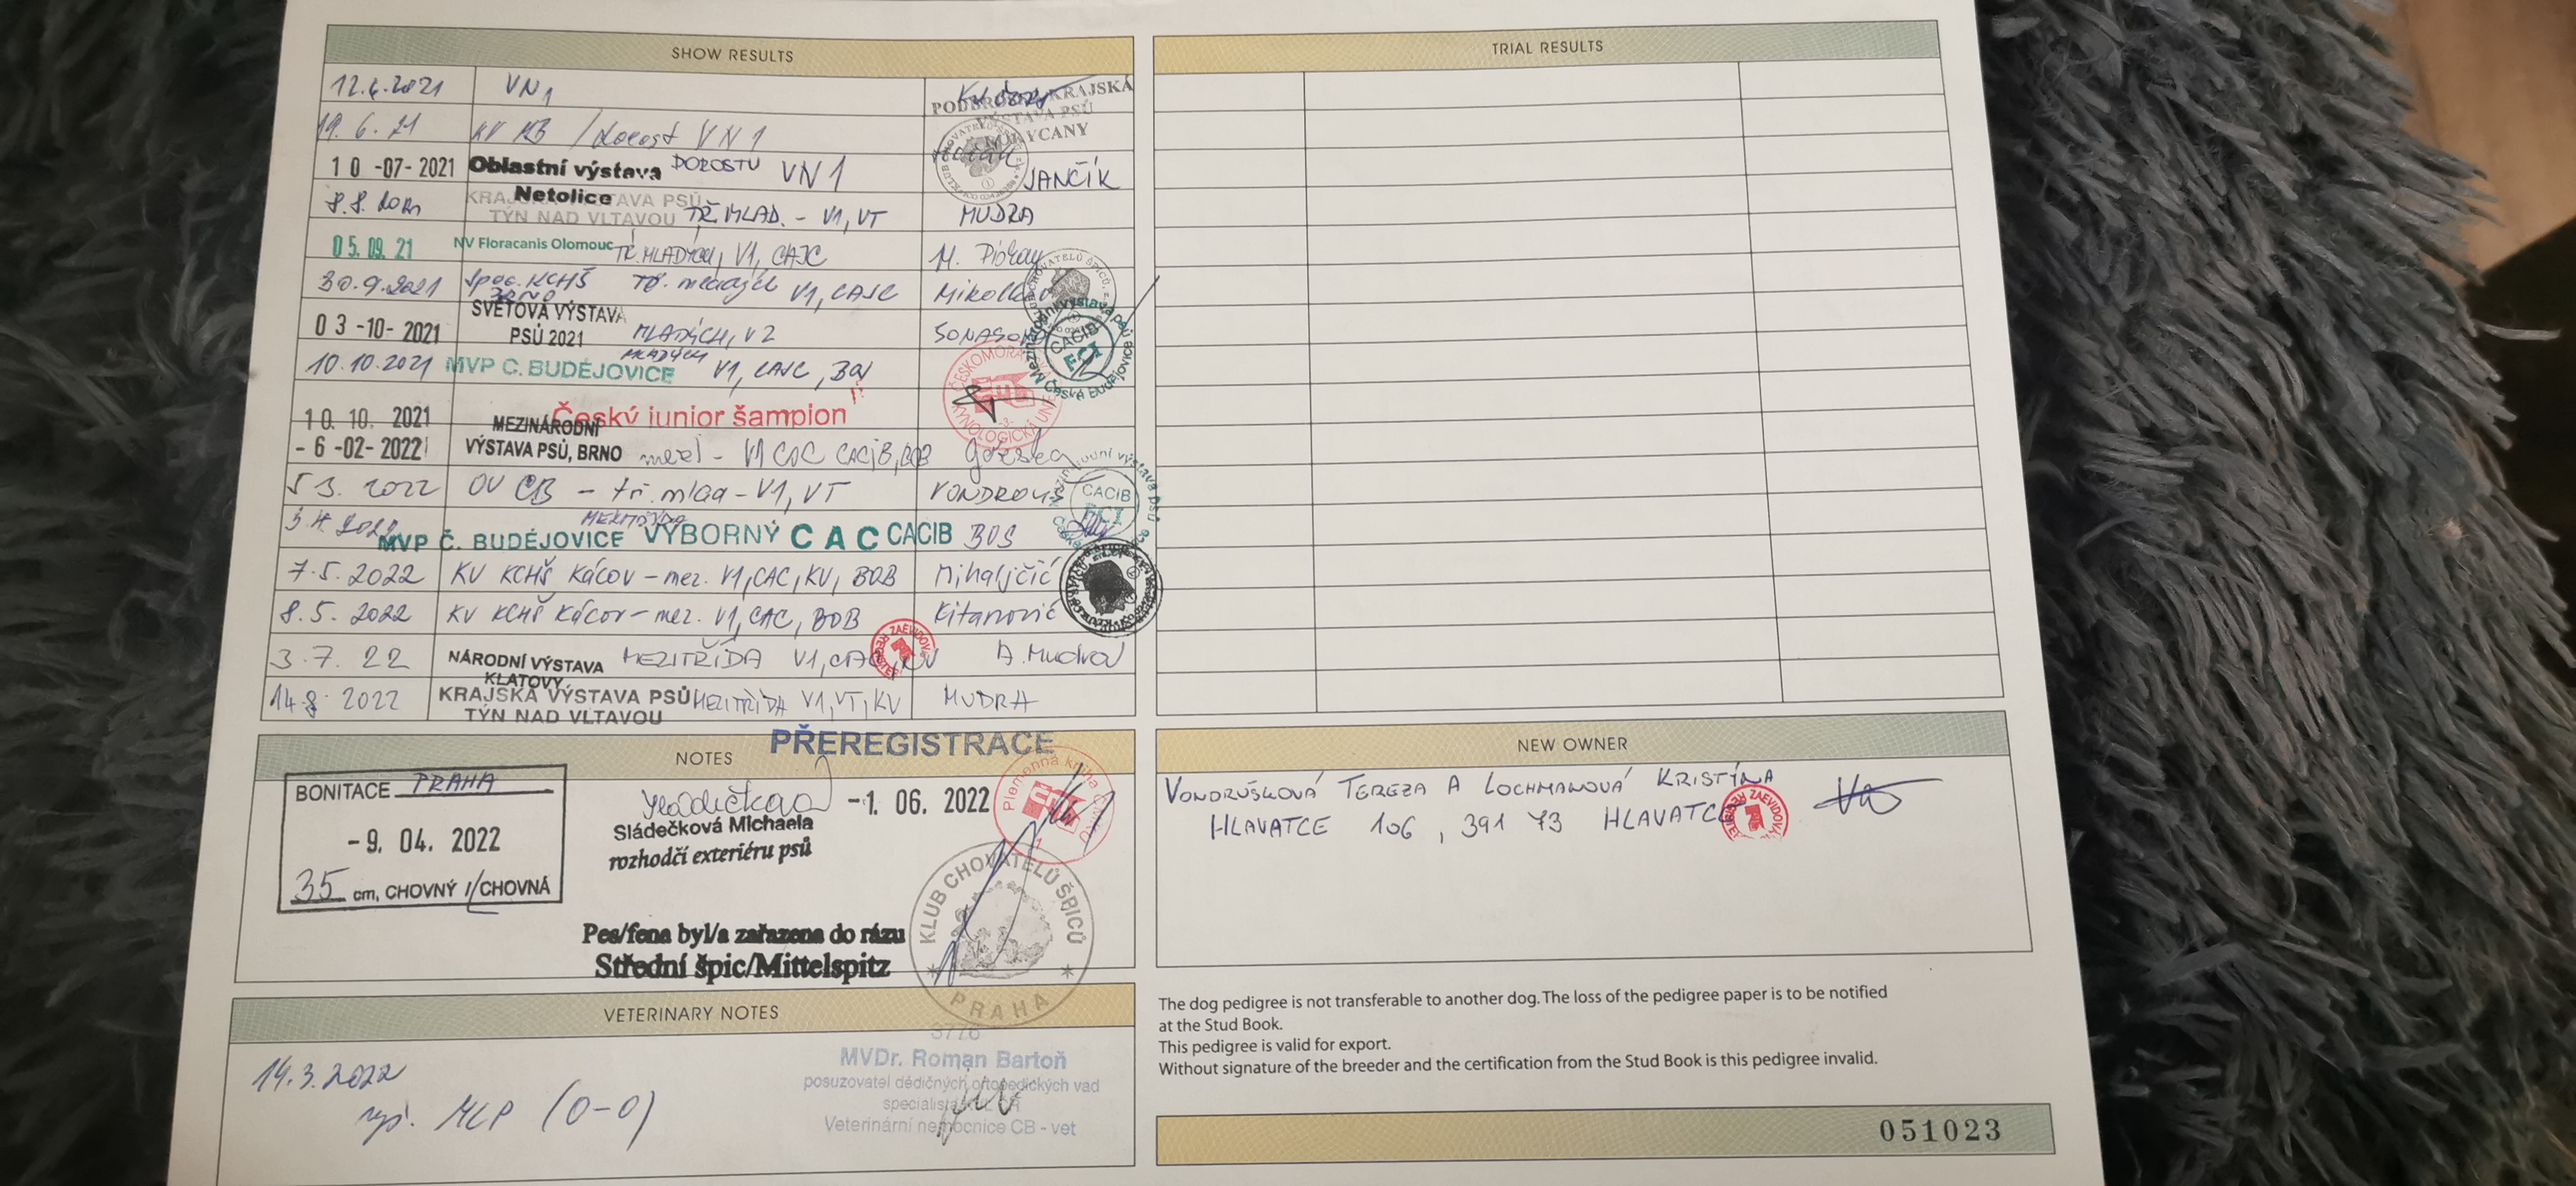 SHOW RESULTS
12.6.2021 VN1
PODBRDSKÁ KRAJSKÁ
VÝSTAVA PSŮ
19.6.21 KV KB / dorost VN1
10-07-2021 Oblastní výstava DOROSTU VN1 JANČÍK
Netolice
8.8.2021 KRAJSKÁ VÝSTAVA PSŮ
TÝN NAD VLTAVOU TŘ. MLAD. - V1, VT MUDRA
05.09.21 NV Floracanis Olomouc TŘ. MLADÝCH, V1, CAJC
30.9.2021 Spec. KCHŠ Tř. mladých V1, CAJC
BRNO
03-10-2021 SVĚTOVÁ VÝSTAVA
PSŮ 2021 MLADÝCH, V2
10.10.2021 MVP Č. BUDĚJOVICE MLADÝCH V1, CAJC, BOJ
CACIB
FCI
ČESKOMORAVSKÁ KYNOLOGICKÁ UNIE
10.10.2021 Český junior šampion
-6-02-2022 MEZINÁRODNÍ
VÝSTAVA PSŮ, BRNO mezi - V1 CAC CACIB, BOB
5 3. 2022 OV ČB - tř. mlad - V1, VT VONDROUŠ
CACIB
FCI
MVP Č. BUDĚJOVICE MEZITŘÍDA VÝBORNÝ CAC CACIB BOS
7.5.2022 KV KCHŠ Kácov - mez. V1, CAC, KV, BOB Mihaljčić
8.5.2022 KV KCHŠ Kácov - mez. V1, CAC, BOB Kitanović
3.7.22 NÁRODNÍ VÝSTAVA MEZITŘÍDA V1, CAC, NV A. Mudra
KLATOVY
14.8 2022 KRAJSKÁ VÝSTAVA PSŮ MEZITŘÍDA V1, VT, KV MUDRA
TÝN NAD VLTAVOU
NOTES
PŘEREGISTRACE
BONITACE PRAHA
-9. 04. 2022
35 cm, CHOVNÝ /CHOVNÁ
Sládečková -1. 06. 2022
Sládečková Michaela
rozhodčí exteriéru psů
Plemenná kniha
Pes/fena byl/a zařazena do rázu
Střední špic/Mittelspitz
KLUB CHOVATELŮ ŠPICŮ
PRAHA
VETERINARY NOTES
14.3.2022
MCP (0-0)
MVDr. Roman Bartoň
posuzovatel dědičných ortopedických vad
Veterinární nemocnice CB - vet
TRIAL RESULTS
NEW OWNER
VONDRŮŠKOVÁ TEREZA A LOCHMANOVÁ KRISTÝNA
HLAVATCE 106, 391 73 HLAVATCE
The dog pedigree is not transferable to another dog. The loss of the pedigree paper is to be notified
at the Stud Book.
This pedigree is valid for export.
Without signature of the breeder and the certification from the Stud Book is this pedigree invalid.
051023